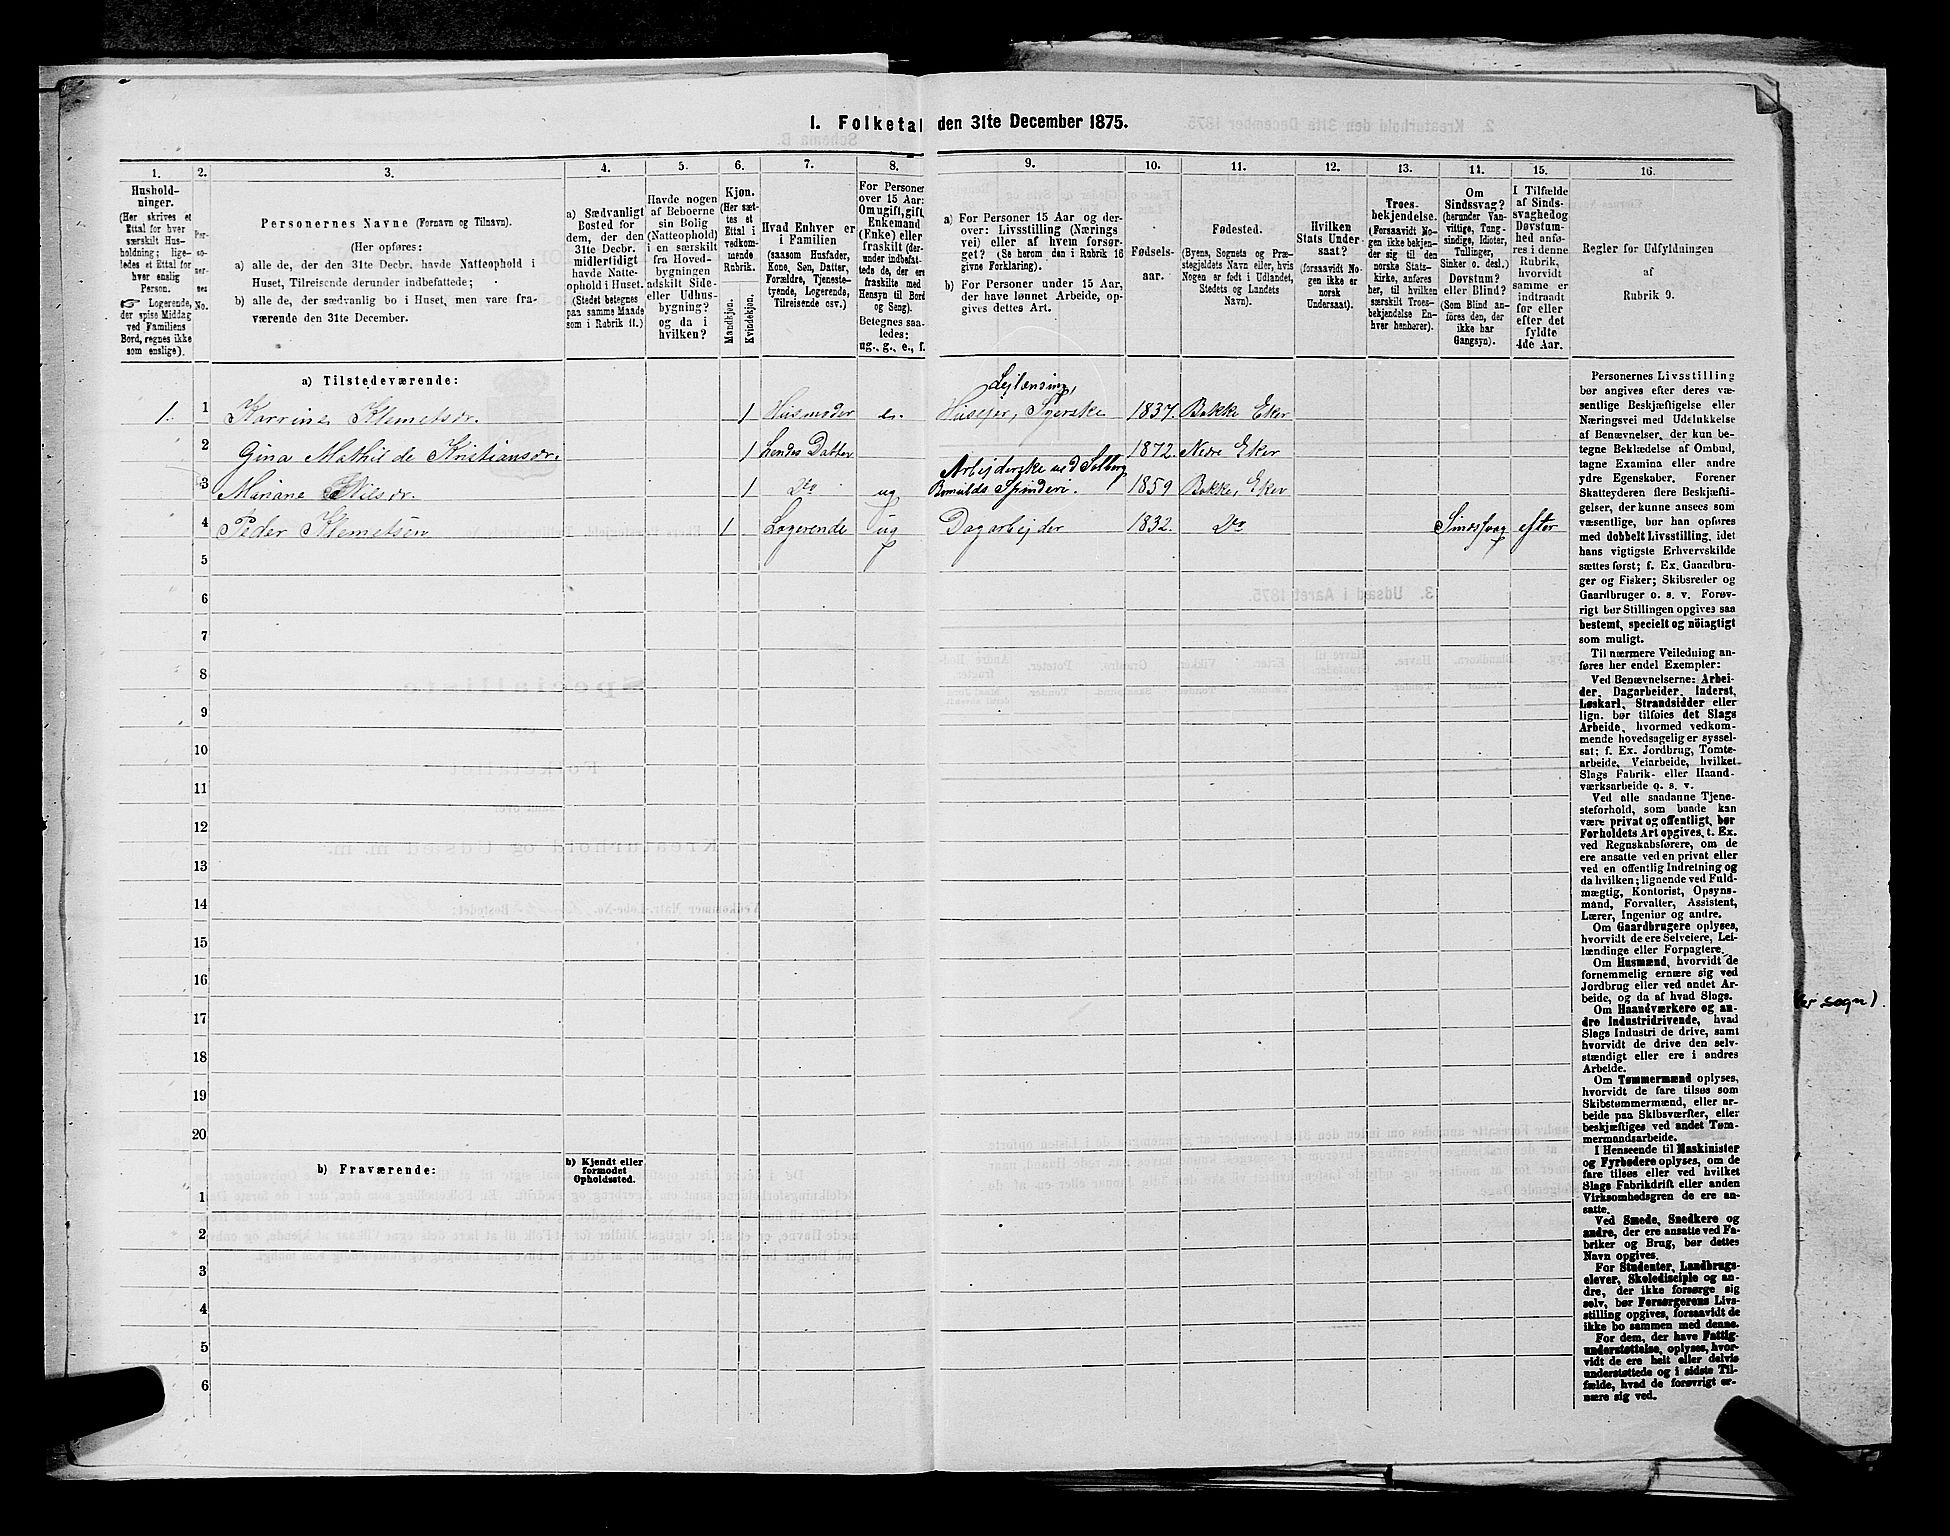 I. Folketal den 31te December 1875.
1.
Hushold-
ninger.
(Her skrives et
Ettal for hver
særskilt Hus-
holdning; lige-
ledes et Ettal for
hver enslig
Person.
Logerende,
der spise Middag
ved Familiens
Bord, regnes ikke
som enslige).
2.
Per-
so-
ner-
nes-
No.
3.
Personernes Navne (Fornavn og Tilnavn).
(Her opføres:
a) alle de, der den 31te Decbr. havde Natteophold i
Huset, Tilreisende derunder indbefattede;
b) alle de, der sædvanlig bo i Huset, men vare fra-
værende den 31te December.
4.
a) Sædvanligt
Bosted for
dem, der den
31te Decbr.
midlertidigt
havde Natte-
ophold i Huset.
(Stedet betegnes
paa samme Maade
som i Rubrik 11.)
5.
Havde nogen
af Beboerne
sin Bolig
(Natteophold)
i en særskilt
fra Hoved-
bygningen
adskilt Side-
eller Udhus-
bygning?
og da i
hvilken?
6.
Kjøn.
(Her sæt-
tes et
Ettal i
vedkom-
mende
Rubrik.
Mandkjøn.
Kvindekjøn.
7.
Hvad Enhver er
i Familien
(saasom Husfader,
Kone, Søn, Datter,
Forældre, Tjeneste-
tyende, Logerende,
Tilreisende osv.)
8.
For Personer
over 15 Aar:
Om ugift, gift,
Enkemand
(Enke) eller
fraskilt (der-
under indbefat-
tede de, der ere
fraskilte med
Hensyn til Bord
og Seng).
Betegnes saa-
ledes:
ug., g., e., f.
9.
a) For Personer 15 Aar og der-
over: Livsstilling (Nærings
vei) eller af hvem forsør-
get? (Se herom den i Rubrik 16
givne Forklaring).
b) For Personer under 15 Aar,
der have lønnet Arbeide, op-
gives dettes Art.
10.
Fødsels-
aar.
11.
Fødested.
(Byens, Sognets og Præ-
stegjeldets Navn eller, hvis
Nogen er født i Udlandet,
Stedets og Landets
Navn).
12.
Hvilken
Stats Under-
saat?
(forsaavidt No-
gen ikke er
norsk
Undersaat).
13.
Troes-
bekjendelse.
(Forsaavidt No-
gen ikke bekjen-
der sig til den
norske Stats-
kirke, anføres
her, til hvilken
særskilt Troes-
bekjendelse En-
hver henhører).
14.
Om
Sindssvag?
(herunder Van-
vittige, Tung-
sindige, Idioter,
Tullinger,
Sinker o. desl.)
Døvstum?
eller Blind?
(Som Blind an-
føres den, der
ikke har
Gangsyn).
15.
I Tilfælde
af Sinds-
svaghed og
Døvstum-
hed anfø-
res i denne
Rubrik,
hvorvidt
samme er
indtraadt
før eller
efter det
fyldte
4de Aar.
16.
Regler for Udfyldningen
af
Rubrik 9.
a) Tilstedeværende:
1. 1 Karrine Klemetsdr. 1 Husmoder e. Lejlænding, Husejer, Syerske 1837. Bakke Eker
2 Gina Mathilde Kristiansdr. 1 hendes Datter 1872. Nedre Eker
3 Mariane Nilsdr. 1 Do ug Arbejderske ved Solberg Bomulds Spinderi. 1859 Bakke, Eker
4 Peder Klemetsen 1 Logerende ug Dagarbejder 1832. Do Sindssvag efter
5
6
7
8
9
10
11
12
13
14
15
16
17
18
19
20
b) Fraværende:
b) Kjendt eller
formodet
Opholdssted.
1
2
3
4
5
6
Personernes Livsstilling
bør angives efter deres væ-
sentlige Beskjæftigelse eller
Næringsvei med Udelukkelse
af Benævnelser, der kun be-
tegne Beklædelse af Ombud,
tagne Examina eller andre
ydre Egenskaber. Forener
Skatteyderen flere Beskjæfti-
gelser, der kunne ansees som
væsentlige, bør han opføres
med dobbelt Livsstilling, idet
hans vigtigste Erhvervskilde
sættes først; f. Ex. Gaardbru-
ger og Fisker; Skibsreder og
Gaardbruger o. s. v. Forøv-
rigt bør Stillingen opgives saa
bestemt, specielt og nöiagtigt
som muligt.
Til nærmere Veiledning an-
føres her endel Exempler:
Ved Benævnelserne: Arbei-
der, Dagarbeider, Inderst,
Løskarl, Strandsidder eller
lign. bør tilføies det Slags
Arbeide, hvormed vedkom-
mende hovedsagelig er syssel-
sat; f. Ex. Jordbrug, Tomte-
arbeide, Veiarbeide, hvilket
Slags Fabrik- eller Haand-
værksarbeide o. s. v.
Ved alle saadanne Tjene-
steforhold, som baade kan
være privat og offentligt, bør
Forholdets Art opgives, t. Ex.
ved Regnskabsførere, om de
ere ansatte ved en privat eller
ved en offentlig Indretning og
da hvilken; lignende ved Fuld-
mægtig, Kontorist, Opsyns-
mand, Forvalter, Assistent,
Lærer, Ingeniør og andre.
Om Gaardbrugere oplyses,
hvorvidt de ere Selveiere, Lei-
lændinge eller Forpagtere.
Om Husmænd, hvorvidt de
fornemmelig ernære sig ved
Jordbrug eller ved andet Ar-
beide, og da af hvad Slags.
Om Haandværkere og an-
dre Industridrivende, hvad
Slags Industri de drive, samt
hvorvidt de drive den selv-
stændigt eller ere i andres
Arbeide.
Om Tømmermænd oplyses,
hvorvidt de fare tilsøs som
Skibstømmermænd, eller ar-
beide paa Skibsværfter, eller
beskjæftiges ved andet Tøm-
mermandsarbeide.
I Henseende til Maskinister
og Fyrbødere oplyses, om de
fare tilsøs eller ved hvilket
Slags Fabrikdrift eller anden
Virksomhedsgren de ere an-
satte.
Ved Smede, Snedkere og
andre, der ere ansatte ved Fa-
briker og Brug, bør dettes
Navn opgives.
For Studenter, Landbrugs-
elever, Skoledisciple og an-
dre, der ikke forsørge sig
selv, bør Forsørgerens Livs-
stilling opgives, forsaavidt de
ikke bo sammen med denne.
For dem, der have Fattig-
understøttelse, oplyses, hvor-
vidt de ere helt eller delvis
understøttede og i sidste Til-
fælde, hvad de forøvrigt er-
nære sig ved.
sogn).